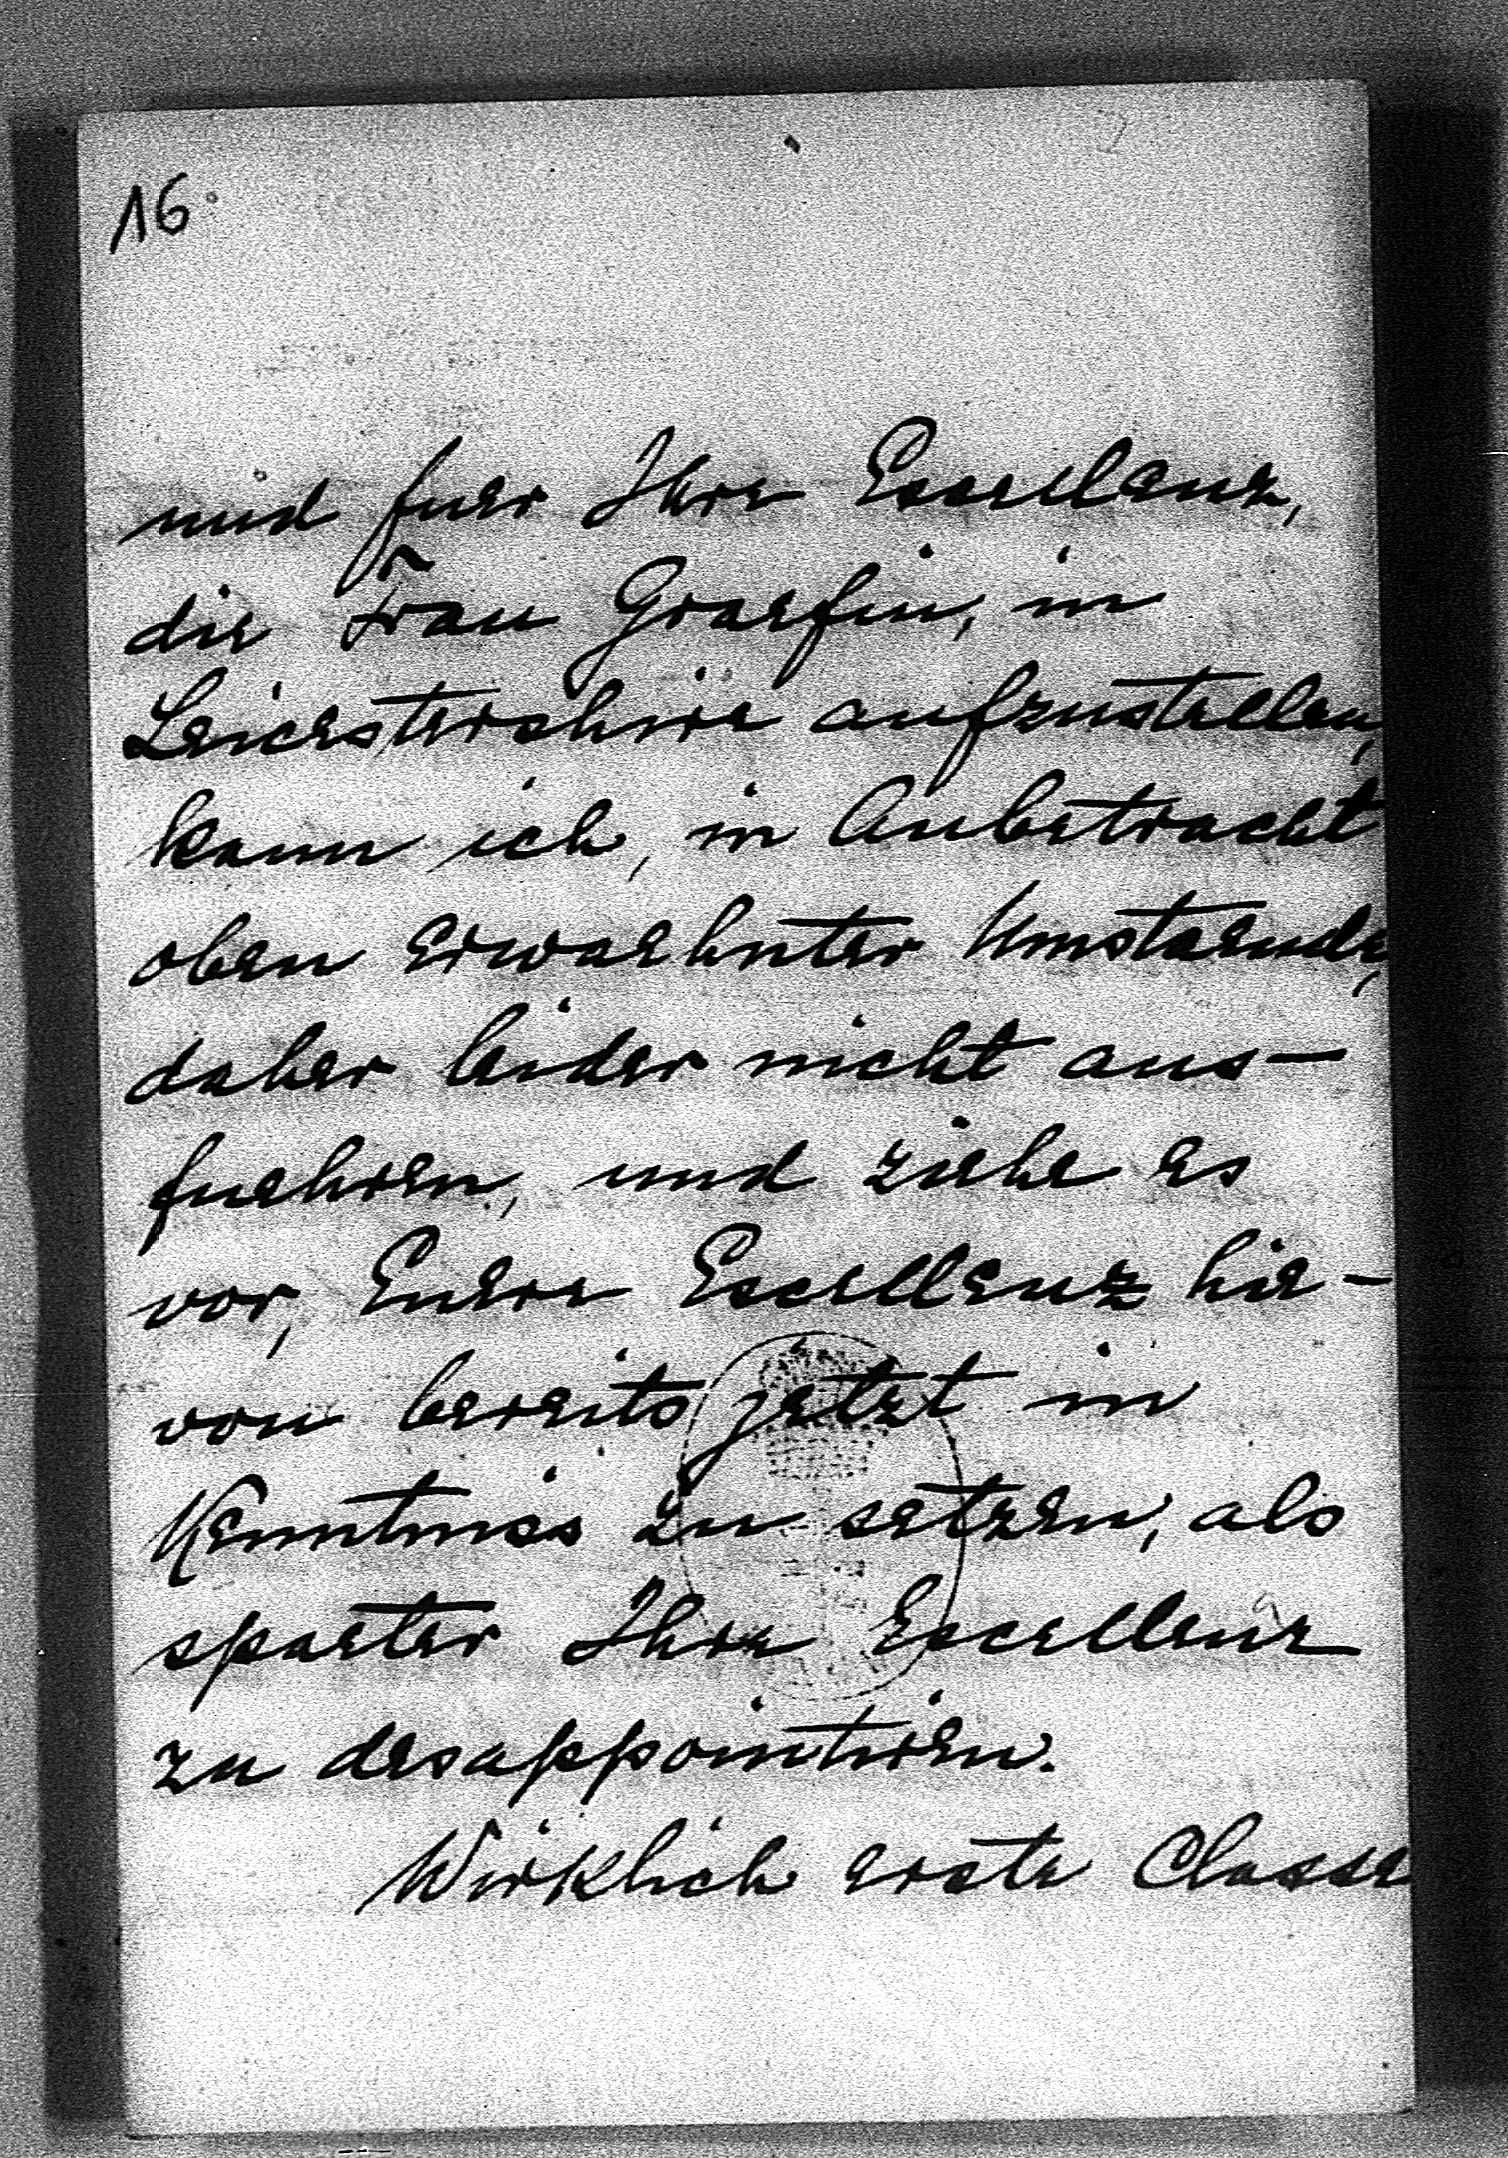 16.
und fuer Ihre Excellenz,
die Frau Graefin, in
Leicestershire aufzustellen,
kann ich, in Anbetracht
oben erwaehnter Umstaende,
daher leider nicht aus-
fuehren, und ziehe es
vor, Euere Excellenz hie-
von bereits jetzt in
Kenntniss zu setzen, als
spaeter Ihre Excellenz
zu desappointiren.
Wirklich erste Classe